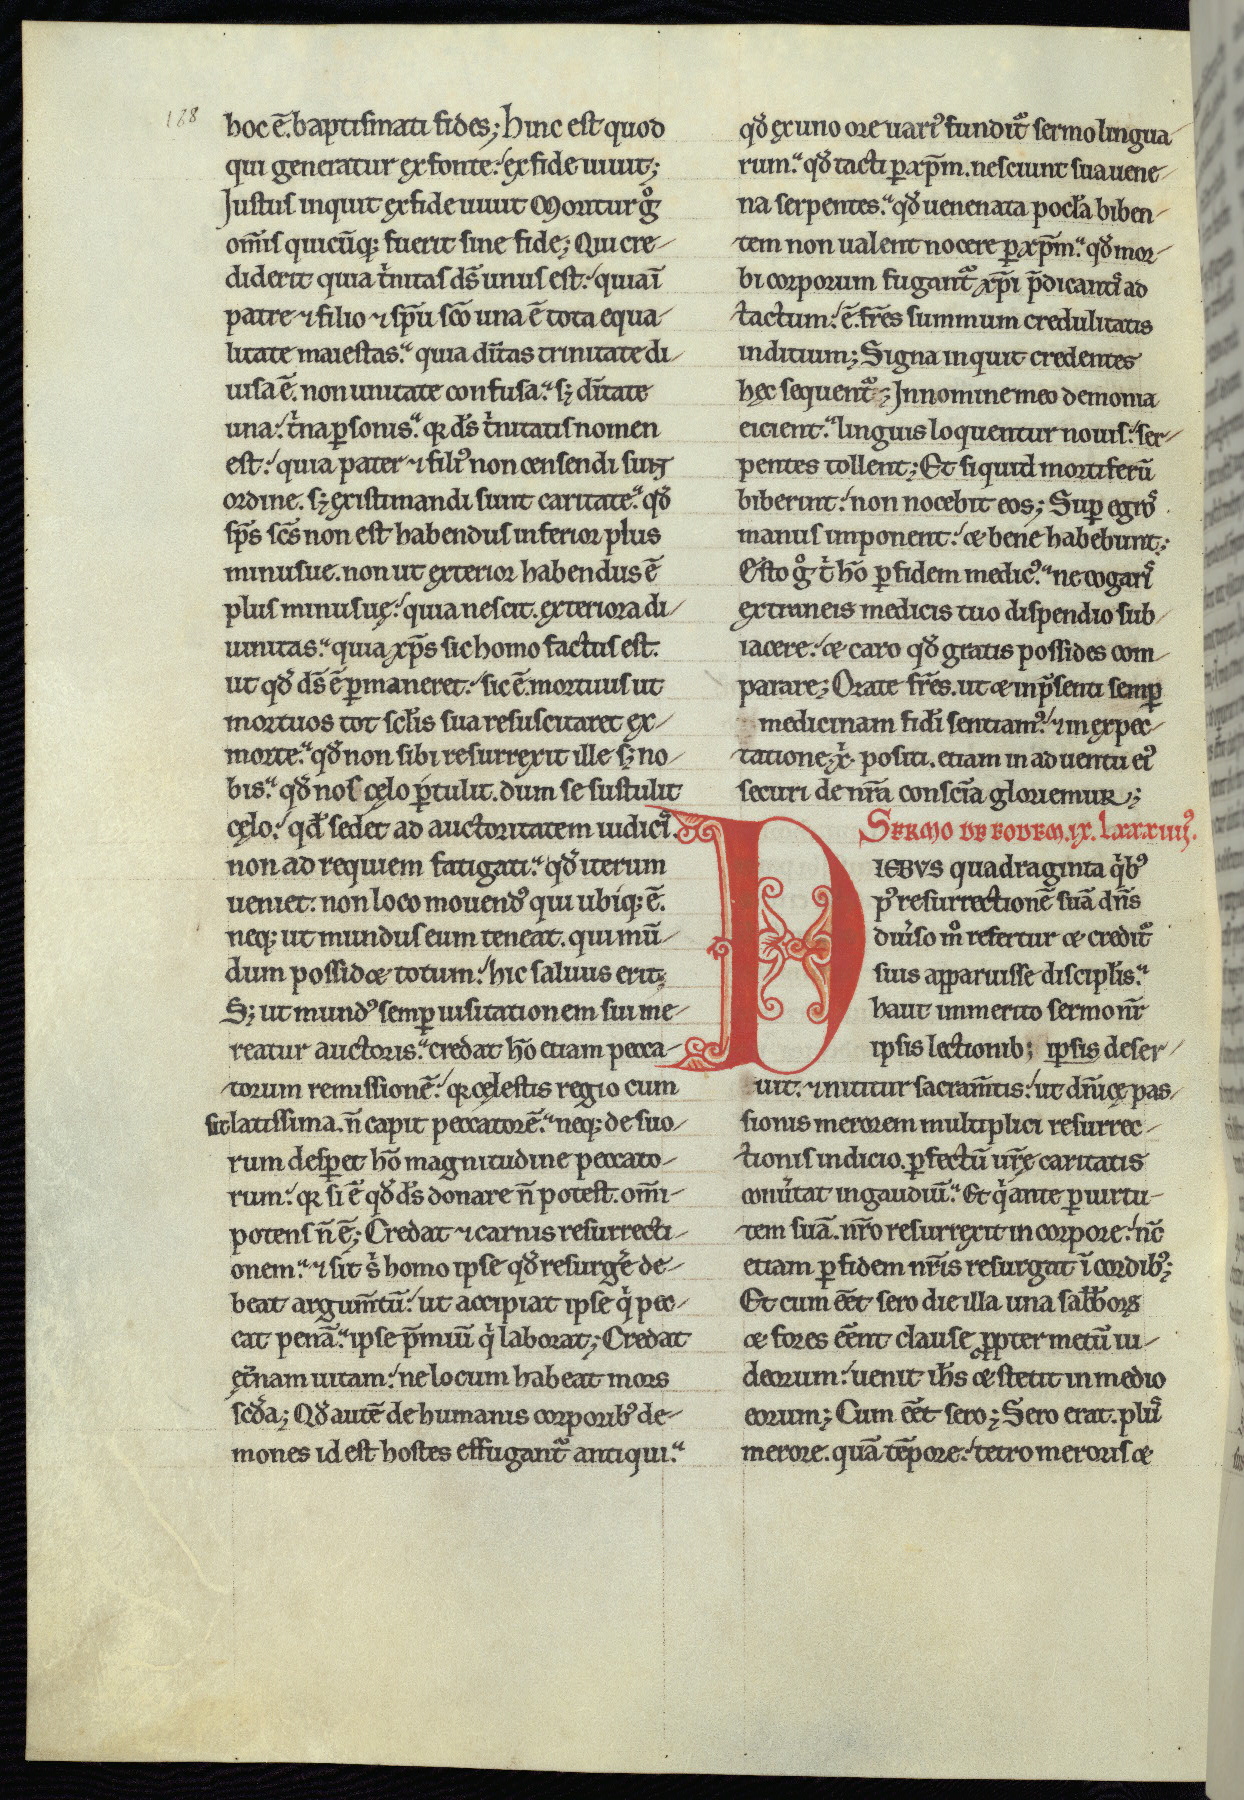 128
hoc ē. baptismati fides; Hinc est quod
qui generatur ex fonte: ex fide uiuit;
Justus inquit ex fide uiuit Moritur gͦ
om̄is quicūq; fuerit sine fide; Qui cre-
diderit quia t'nitas ds̄ unus est: quia ī
patre ⁊ filio ⁊ sp̄u sc̄o una ē tota equa-
litate maiestas. quia diī̄tas trinitate di-
uisa ē. non unitate confusa. sꝫ diī̄tate
una: t'na ꝑsonis. qꝛ ds̄ t'nitatis nomen
est: quia pater ⁊ fili⁹ non censendi sunt
ordine. sꝫ existimandi sunt caritate. qđ
sp̄s sc̄s non est habendus inferior plus
minusue. non ut exterior habendus ē
plus minusuę: quia nescit. exteriora di-
uinitas. quia xp̄s sic homo factus est.
ut qđ ds̄ ē ꝑmaneret: sic ē mortuus ut
mortuos tot scl̄is sua resuscitaret ex-
morte. qđ non sibi resurrexit ille sꝫ no-
bis. qđ nos cęlo p̄tulit. dum se sustulit
cęlo: qđ sedet ad auctoritatem iudici.
non ad requiem fatigati. qđ iterum
ueniet: non loco mouend⁹ qui ubiq; ē.
neq; ut mundus eum teneat. qui mū-
dum possidet totum: hic saluus erit;
Sꝫ ut mund⁹ semꝑ uisitationem sui me-
reatur auctoris. credat hō etiam pecca-
torum remissionē: qꝛ cęlestis regio cum
sit latissima. n̄ capit peccatorē. neq; de suo-
rum desperet hō magnitudine peccato-
rum: qꝛ si ē qđ ds̄ donare n̄ potest. om̄i-
potens n̄ ē; Credat ⁊ carnis resurrecti-
onem. ⁊ sit s' homo ipse qđ resurgē de-
beat argum̄tū: ut accipiat ipse q' pec-
cat penā. ipse p̄miū q' laborat; Credat
ęt'nam uitam: ne locum habeat mors
sc̄da; Qđ autē de humanis corporib⁹ de-
mones id est hostes effugant' antiqui.
qđ ex uno ore uari⁹ fundit' sermo lingua-
rum. qđ tacti ꝑ xp̄m. nesciunt sua uene-
na serpentes. qđ uenenata pocl̄a biben-
tem non ualent nocere ꝑ xp̄m. qđ mor-
bi corporum fugant' xp̄i p̄dicanti ad
tactum: ē. fr̄es summum credulitatis
inditium; Signa inquit credentes
hęc sequent'; In nomine meo demonia
eicient. linguis loquentur nouis: ser-
pentes tollent; Et si quid mortiferū
biberint: non nocebit eos; Suꝑ egros
manus imponent: et bene habebunt;
Esto gͦ t' hō ꝑ fidem medic⁹. ne cogaris
extraneis medicis tuo dispendio sub-
iacere: et caro qđ gratis possides com-
parare; Orate fr̄es. ut et in p̄senti semꝑ
medicinam fidei sentiam⁹: ⁊ in expec-
tatione x' positi. etiam in aduentu ei⁹
securi de nr̄a consciā gloriemur;
Sermo de eodem. ix. lxxxiiii⁹.
DIEBVS quadraginta q'b⁹
p⁹ resurrectionē suā dn̄s
diu'so mͦ refertur et credit'
suis apparuisse discipl̄is.
haut immerito sermo nr̄
ipsis lectionib; ipsis deser-
uit. ⁊ nititur sacram̄tis: ut dn̄icę pas-
sionis merorem multiplici resurrec-
tionis indicio. ꝑfectū ur̄e caritatis
conu'tat in gaudiū. Et q' ante ꝑ uirtu-
tem suā. nr̄o resurrexit in corpore: nc̄
etiam ꝑ fidem nr̄is resurgat ī cordib⁹;
Et cum eēt sero die illa una sabboꝝ
et fores eēnt clause ꝓpter metū iu-
deorum: uenit ih̄s et stetit in medio
eorum; Cum eēt sero; Sero erat. plus
merore. quā tēpore: tetro meroris et